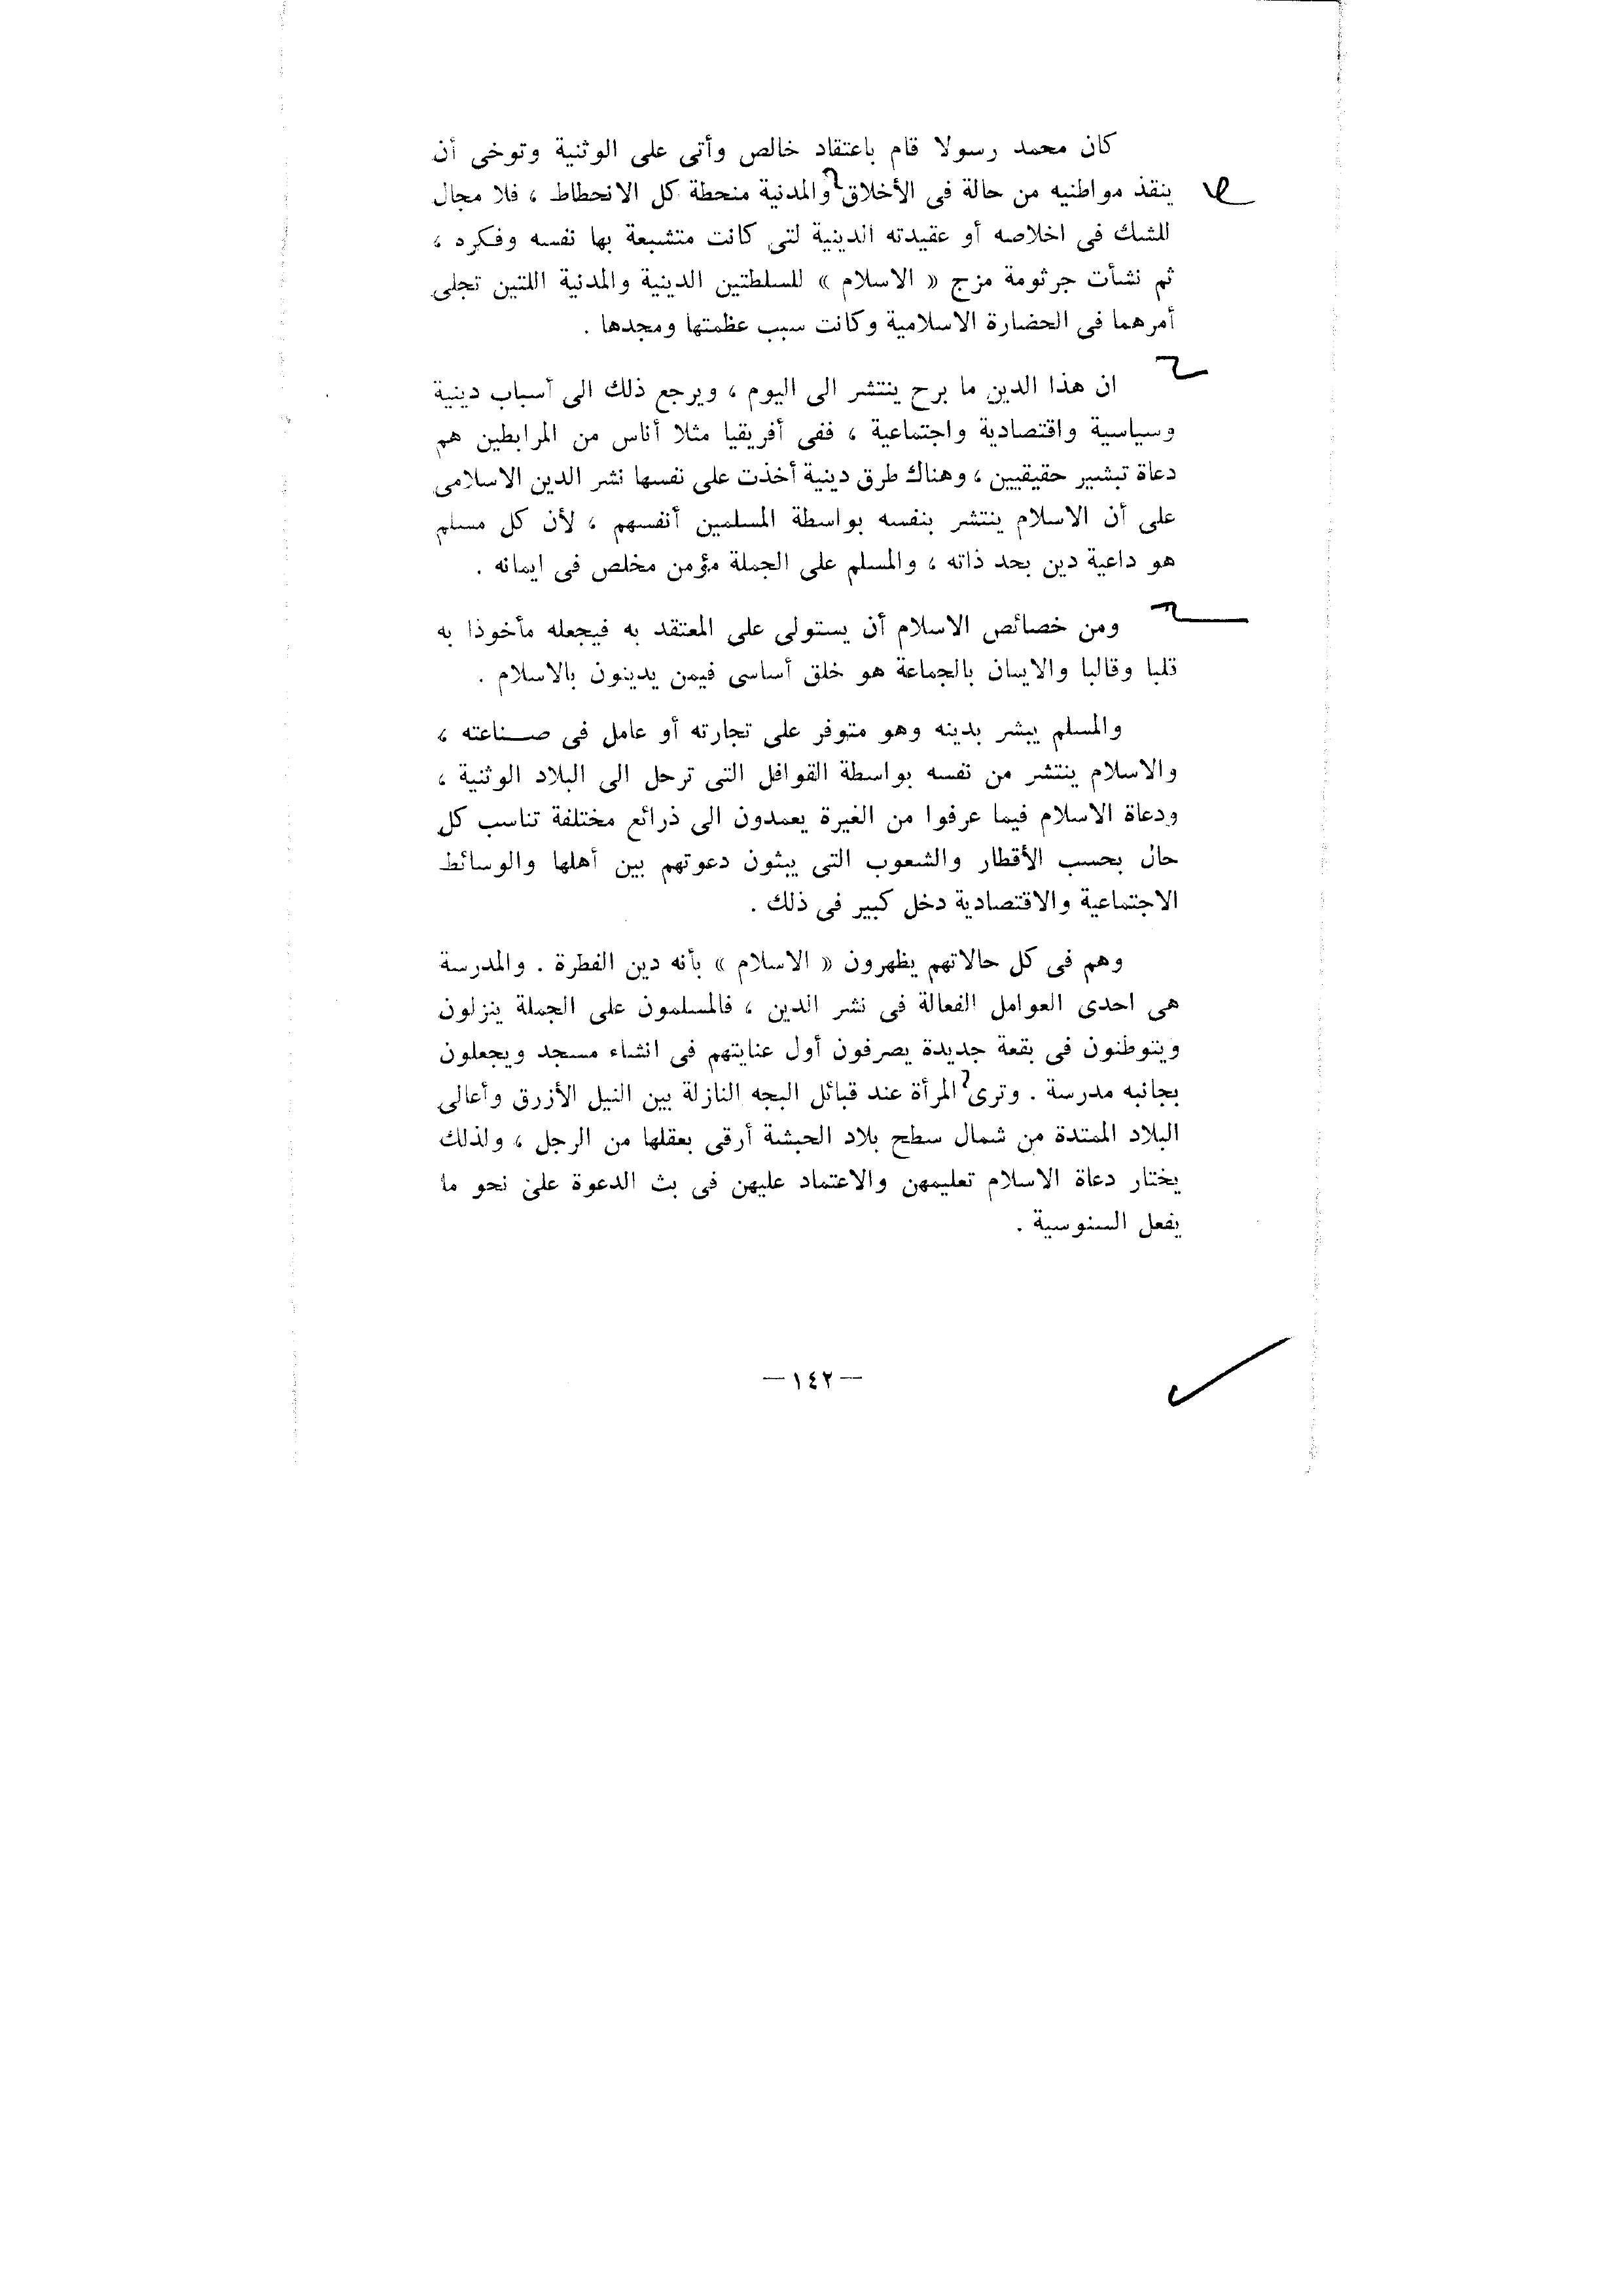 كان محمد رسولا قام باعتقاد خالص وأتى على الوثنية وتوخى أن
ينقذ مواطنيه من حالة فى الأخلاق والمدنية منحطة كل الانحطاط ، فلا مجال
للشك فى اخلاصه أو عقيدته الدينية لتى كانت متشبعة بها نفسه وفكره ،
ثم نشأت جرثومة مزج « الاسلام » للسلطتين الدينية والمدنية اللتين تجلى
أمرهما فى الحضارة الاسلامية وكانت سبب عظمتها ومجدها .
ان هذا الدين ما برح ينتشر الى اليوم ، ويرجع ذلك الى أسباب دينية
وسياسية واقتصادية واجتماعية ، ففى أفريقيا مثلا أناس من المرابطين هم
دعاة تبشير حقيقيين ، وهناك طرق دينية أخذت على نفسها نشر الدين الاسلامى
على أن الاسلام ينتشر بنفسه بواسطة المسلمين أنفسهم ، لأن كل مسلم
هو داعية دين بحد ذاته ، والمسلم على الجملة مؤمن مخلص فى ايمانه .
ومن خصائص الاسلام أن يستولى على المعتقد به فيجعله مأخوذا به
قلبا وقالبا والايمان بالجماعة هو خلق أساسى فيمن يدينون بالاسلام .
والمسلم يبشر بدينه وهو متوفر على تجارته أو عامل فى صناعته ،
والاسلام ينتشر من نفسه بواسطة القوافل التى ترحل الى البلاد الوثنية ،
ودعاة الاسلام فيما عرفوا من الغيرة يعمدون الى ذرائع مختلفة تناسب كل
حال بحسب الأقطار والشعوب التى يبثون دعوتهم بين أهلها والوسائط
الاجتماعية والاقتصادية دخل كبير فى ذلك .
وهم فى كل حالاتهم يظهرون « الاسلام » بأنه دين الفطرة . والمدرسة
هى احدى العوامل الفعالة فى نشر الدين ، فالمسلمون على الجملة ينزلون
ويتوطنون فى بقعة جديدة يصرفون أول عنايتهم فى انشاء مسجد ويجعلون
بجانبه مدرسة . وترى المرأة عند قبائل البجه النازلة بين النيل الأزرق وأعالى
البلاد الممتدة من شمال سطح بلاد الحبشة أرقى بعقلها من الرجل ، ولذلك
يختار دعاة الاسلام تعليمهن والاعتماد عليهن فى بث الدعوة على نحو ما
يفعل السنوسية .
— ١٤٢ —